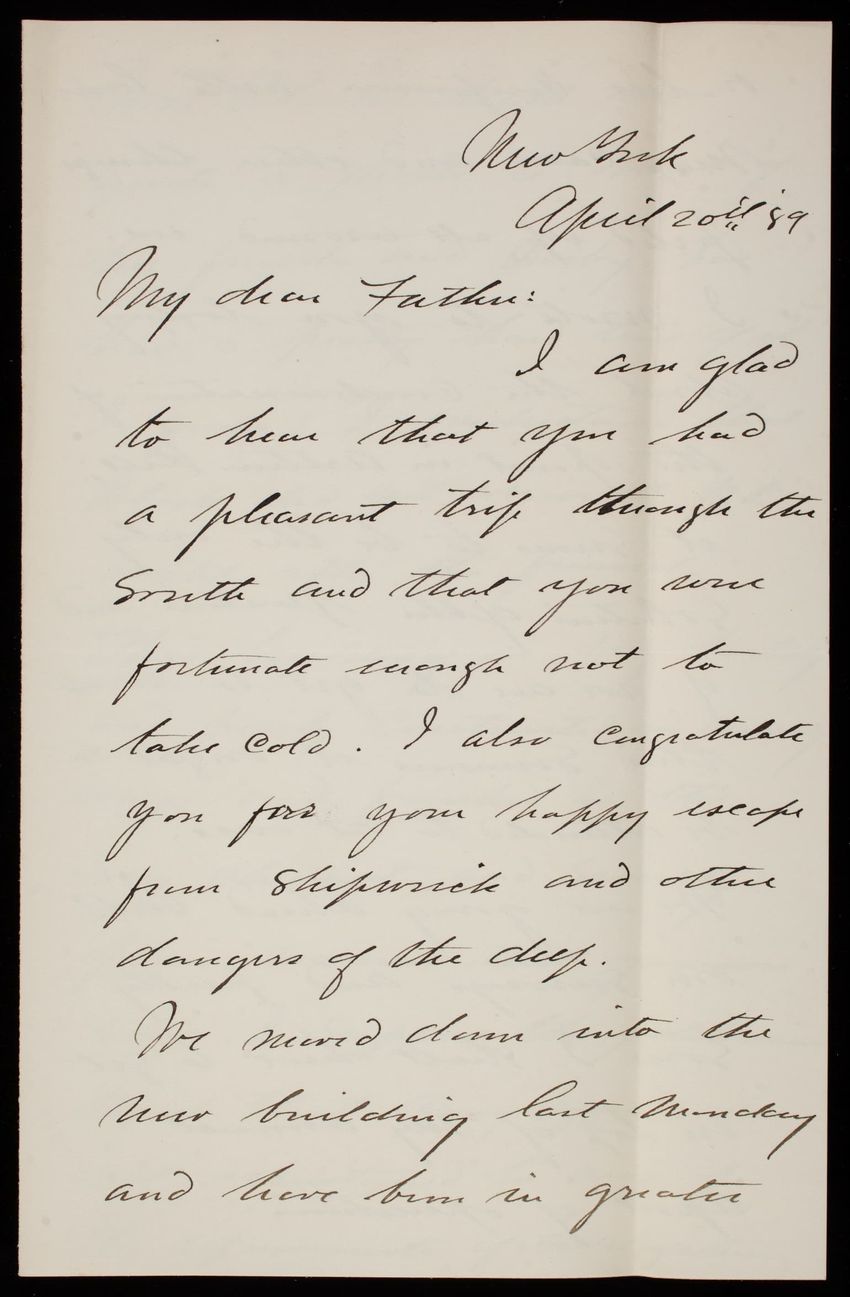 New York
April 20th '89
My dear Father:
I am glad
to hear that you had
a pleasant trip through the
South and that you were
fortunate enough not to
take cold. I also congratulate
you for your happy escape
from Shipwrick and other
dangers of the deep.
We moved down into the
new building last Monday
and have been in greater